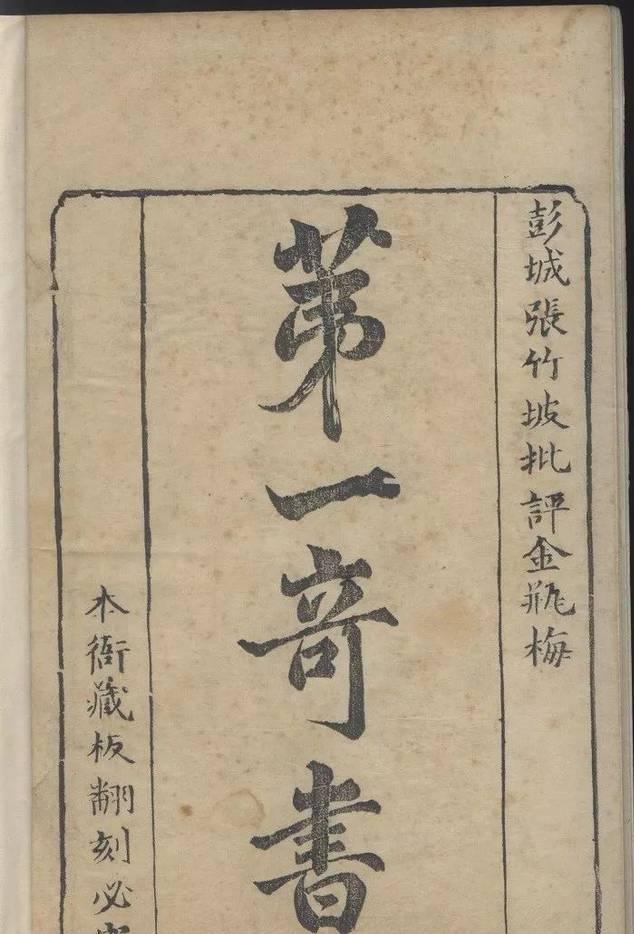 彭城張竹坡批評金瓶梅
第一奇書
本衙藏板翻刻必